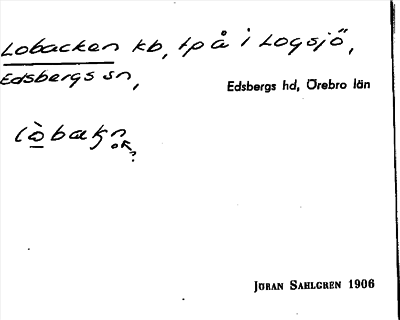 Lobacken kb, tp å i Logsjö,
Edsbergs sn,
Edsbergs hd, Örebro län
JÖRAN SAHLGREN 1906